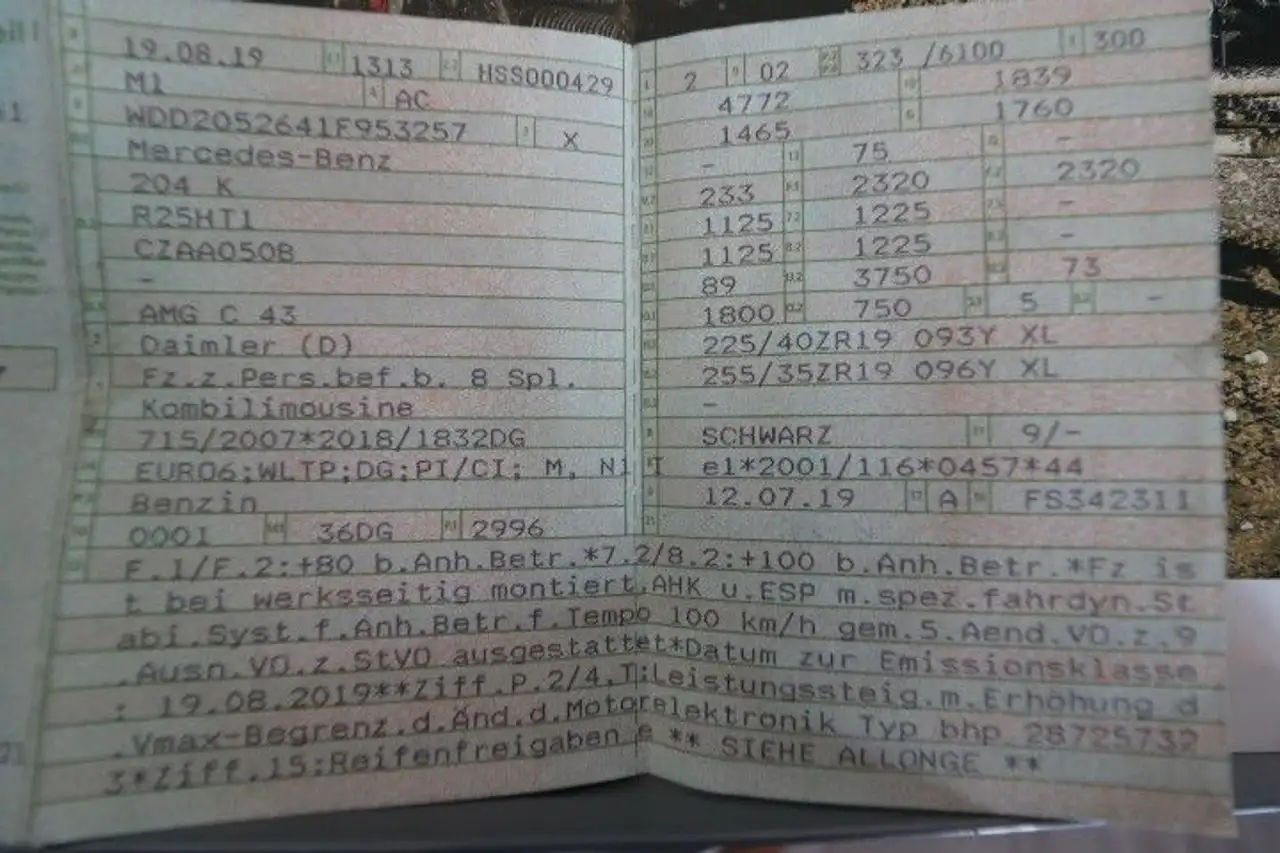 19.08.19 1313 HSS000429
M1 AC
WDD2052641F953257 X
Mercedes-Benz
204 K
R25HT1
CZAA050B
-
AMG C 43
Daimler (D)
Fz.z.Pers.bef.b. 8 Spl.
Kombilimousine
715/2007*2018/1832DG
EURO6;WLTP;DG;PI/CI; M, N1 I
Benzin
0001 36DG P.1 2996
2 02 323 /6100 300
4772 1839
1465 1760
- 75 -
233 2320 2320
1125 7.2 1225 -
1125 8.2 1225 -
89 3750 73
1800 750 5 -
225/40ZR19 093Y XL
255/35ZR19 096Y XL
-
SCHWARZ 9/-
e1*2001/116*0457*44
12.07.19 A FS342311
F.1/F.2:+80 b.Anh.Betr.*7.2/8.2:+100 b.Anh.Betr.*Fz is
t bei werksseitig montiert.AHK u.ESP m.spez.fahrdyn.St
abi.Syst.f.Anh.Betr.f.Tempo 100 km/h gem.5.Aend.VO.z.9
.Ausn.VO.z.StVO ausgestattet*Datum zur Emissionsklasse
: 19.08.2019**Ziff.P.2/4.T:Leistungssteig.m.Erhöhung d
.Vmax-Begrenz.d.Änd.d.Motorelektronik Typ bhp 28725732
3*Ziff.15:Reifenfreigaben e ** SIEHE ALLONGE **